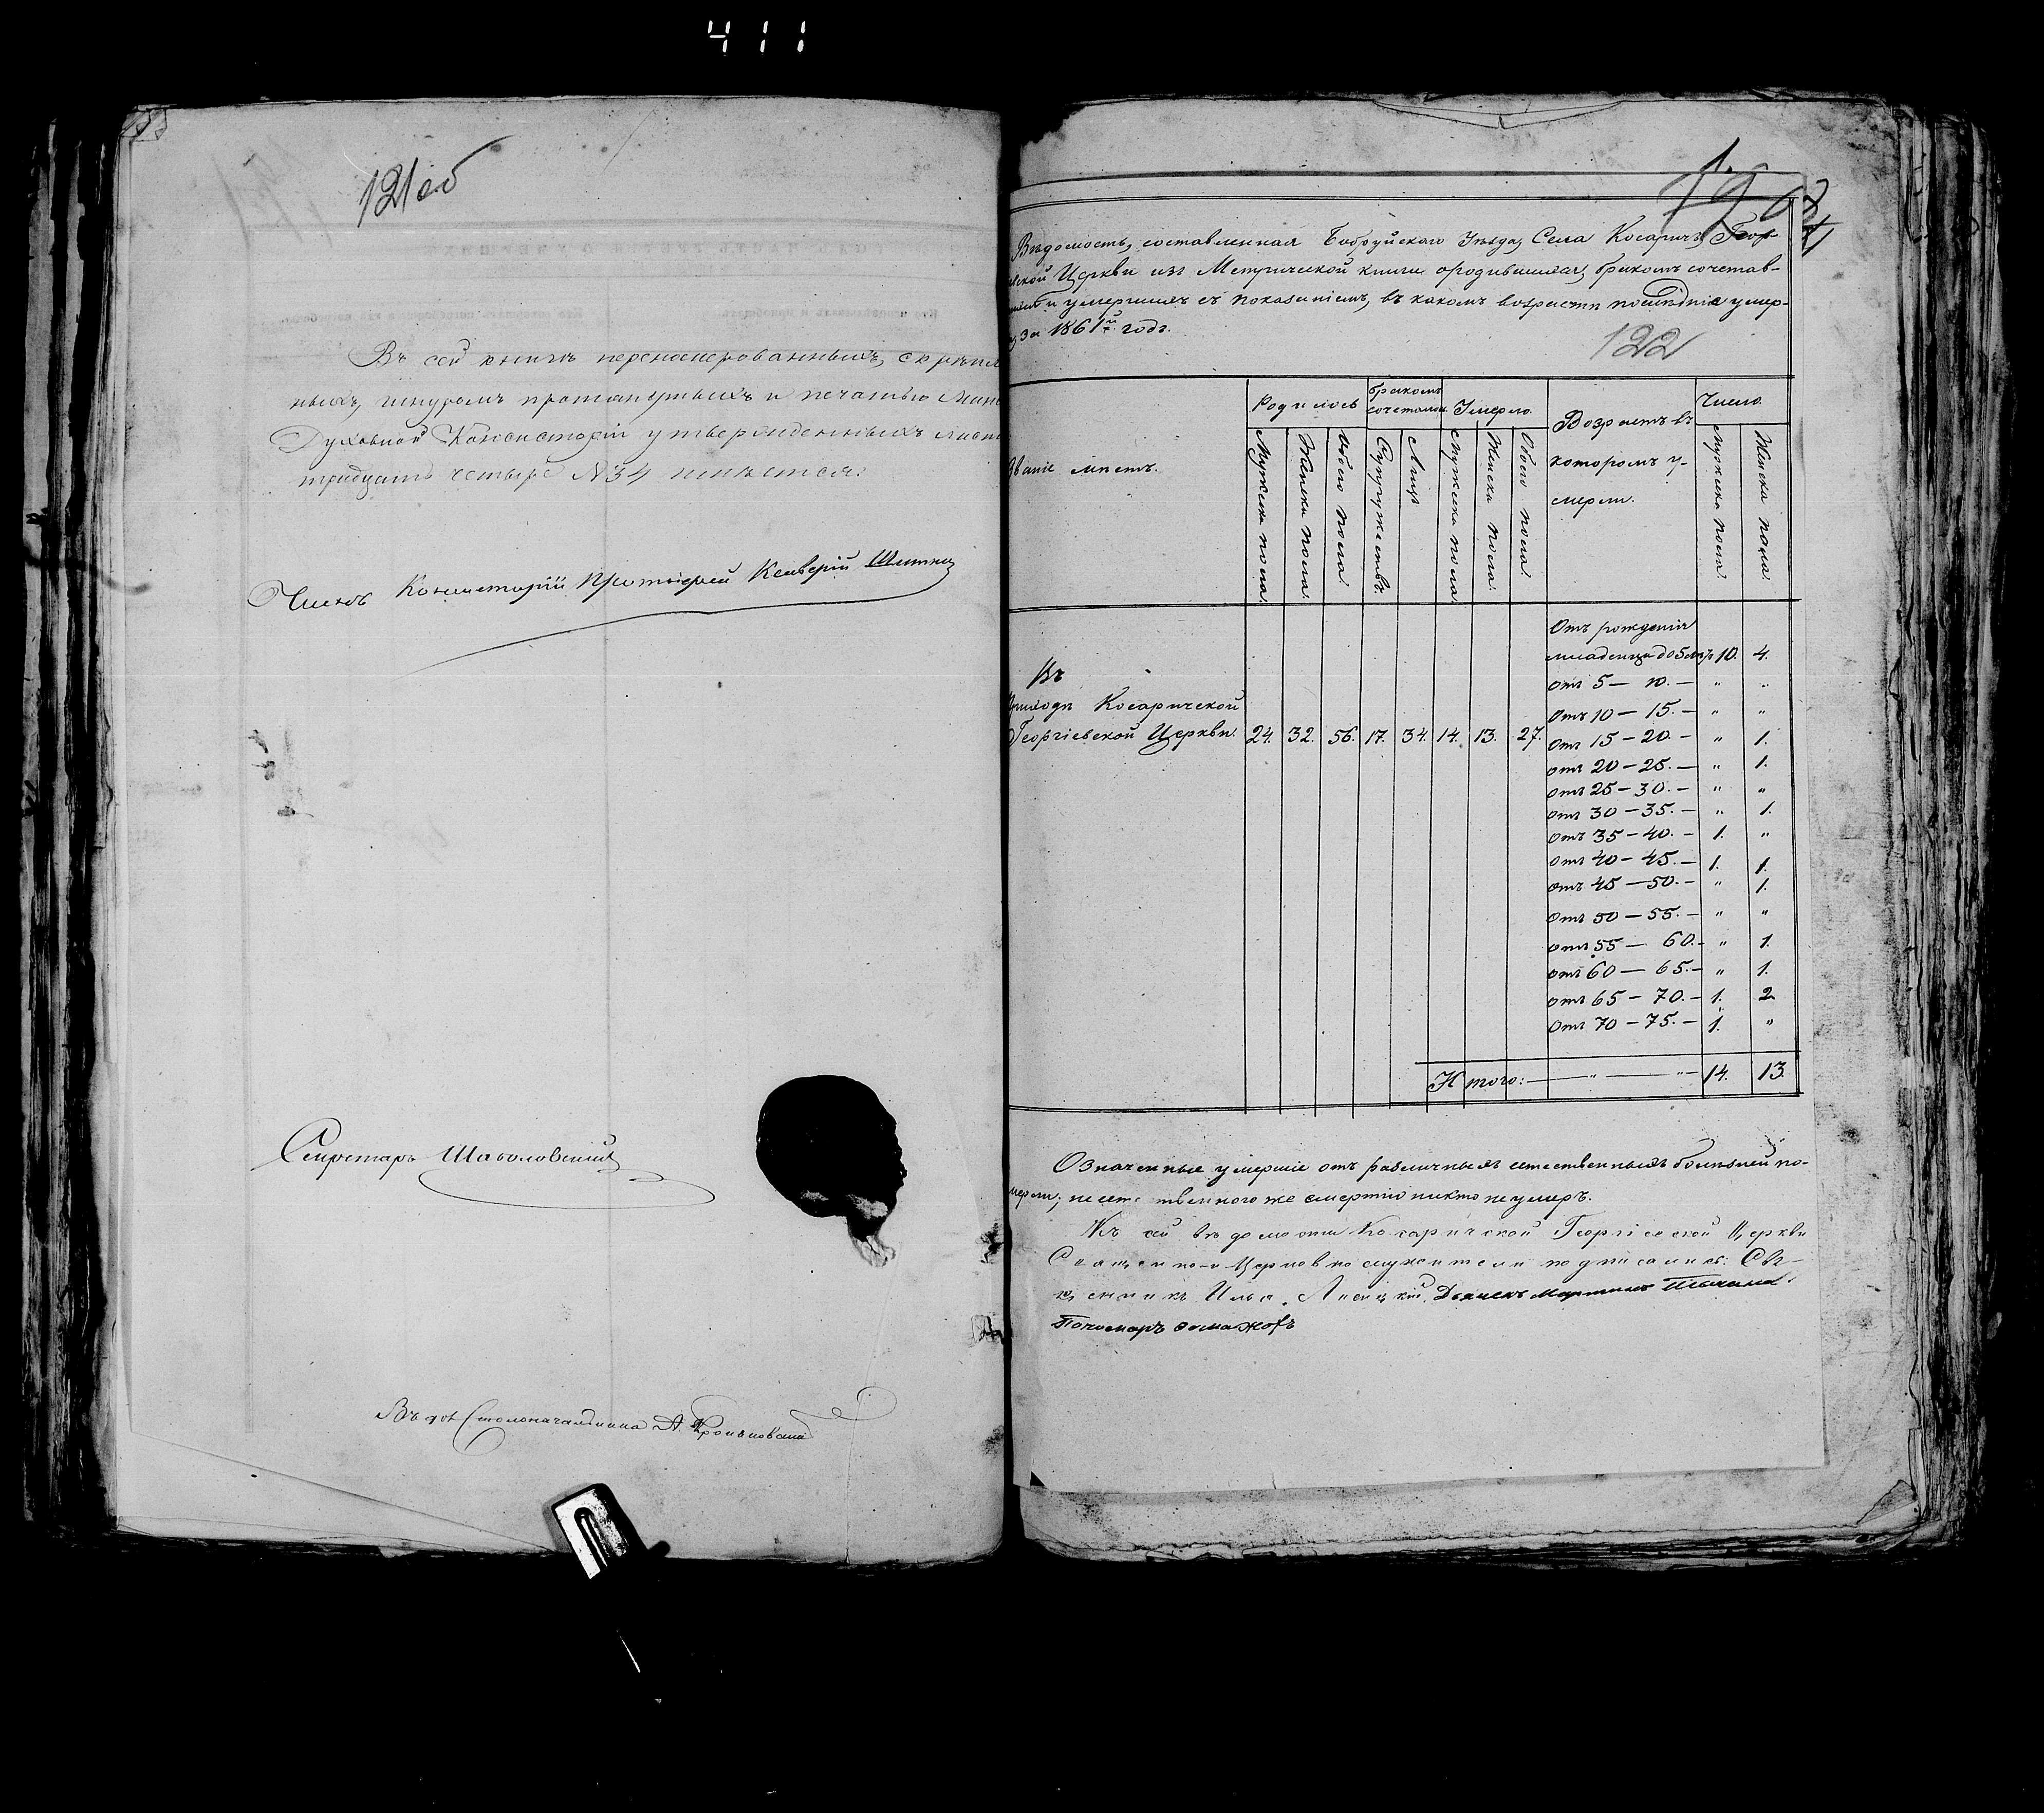 411
121 об
Въ сей книгѣ переномерованныхъ, скрѣплен
ныхъ, шнуромъ протянутыхъ и печатью Минс
Духовной Консисторіи утвержденныхъ листо
тридцать четыре N 34 имѣется.
Членъ Консисторіи Протоіерей Ксаверій
Секретарь
Въ дол. Столоначальника А.
Вѣдомость, составленная Бобруйскаго Уѣзда, Села Косаричъ, Геор-
вской Церкви изъ Метрической книги о родившихся, бракомъ сочетав-
и умершихъ съ показаніемъ, въ какомъ возрастѣ послѣдніе умер-
за 1861й годъ.
122
званіе мѣстъ.
Родилось
Мужеска пола.
Женска пола.
Обоего пола.
Бракомъ сочеталось
Супружествъ.
Лицъ
Умерло.
Мужеска пола.
Женска пола.
Обоего пола.
Возрастъ въ
которомъ у-
мерли.
Число.
Мужеска пола.
Женска пола.
Отъ рожденія
младенца до 5 лѣтъ 10. 4.
отъ 5 — 10. — " "
Отъ 10 — 15. — " "
Отъ 15 — 20. — " 1.
отъ 20 — 25. — " 1.
отъ 25 — 30. — " "
отъ 30 — 35. — " 1.
отъ 35 — 40. — 1. "
отъ 40 — 45. — 1. 1.
отъ 45 — 50. — " 1.
отъ 50 — 55. — " "
отъ 55 — 60. — " 1.
отъ 60 — 65. — " 1.
отъ 65 — 70. — 1. 2
отъ 70 — 75. — 1. "
Въ
приходѣ Косаричской
Георгіевской Церкви. 24. 32. 56. 17. 34. 14. 13. 27.
Итого: — " — " — 14. 13.
Означенные умершіе отъ различныхъ естественныхъ болѣзней по-
мерли; неестественного же смертію никто не умеръ.
Къ сей вѣдомости Косаричской Георгіевской Церкви
Священно-и Церковнослужители подписались: Свя-
щенникъ Илья Лисицкій, Дьячекъ Мартинъ
Пономарь